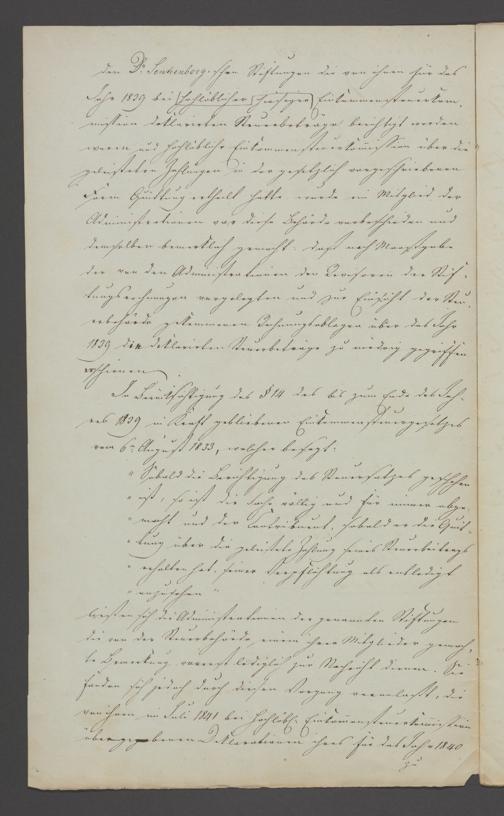 den Dr. Senkenberg.schen Stiftungen die von ihnen für das
Jahr 1839 bei hochlöblicher hiesiger Einkommensteuerkom-
mission deklarirten Steuerbeträge berichtigt worden
waren und hochlöbliche Einkommensteuerkommission über die
geleisteten Zahlungen in der gesetzlich vorgeschriebenen
Form Quittung ertheilt hatte, wurde ein Mitglied der
Administrationen vor diese Behörde vorbeschieden und
demselben bemerklich gemacht: daß nach Maasgabe
der von den Administrationen den Revisoren der Stif-
tungsrechnungen vorgelegten und zur Einsicht der Steu-
erbehörde gekommenen Rechnungsablagen über das Jahr
1839 die deklarirten Steuerbeträge zu niedrig gegriffen
erschienen.
In Berücksichtigung des § 14 des bis zum Ende des Jah-
res 1839 in Kraft gebliebenen Einkommensteuergesetzes
vom 6. August 1833, welcher besagt:
"Sobald die Berichtigung des Steuersatzes geschehen
"ist, so ist die Sache völlig und für immer abge-
"macht und der Contribuent, sobald er die Quit-
"tung über die geleistete Zahlung seines Steuerbeitrags
"erhalten hat, seiner Verpflichtung als entledigt
"anzusehen"
ließen sich die Administrationen der genannten Stiftungen
die von der Steuerbehörde einem ihrer Mitglieder gemach-
te Bemerkung vorerst lediglich zur Nachricht dienen. Sie
fanden sich jedoch durch diesen Vorgang veranlaßt, die
von ihnen im Juli 1841 bei hochlöbl. Einkommensteuerkommission
übergegebenen Deklarationen ihres für das Jahr 1840
zu